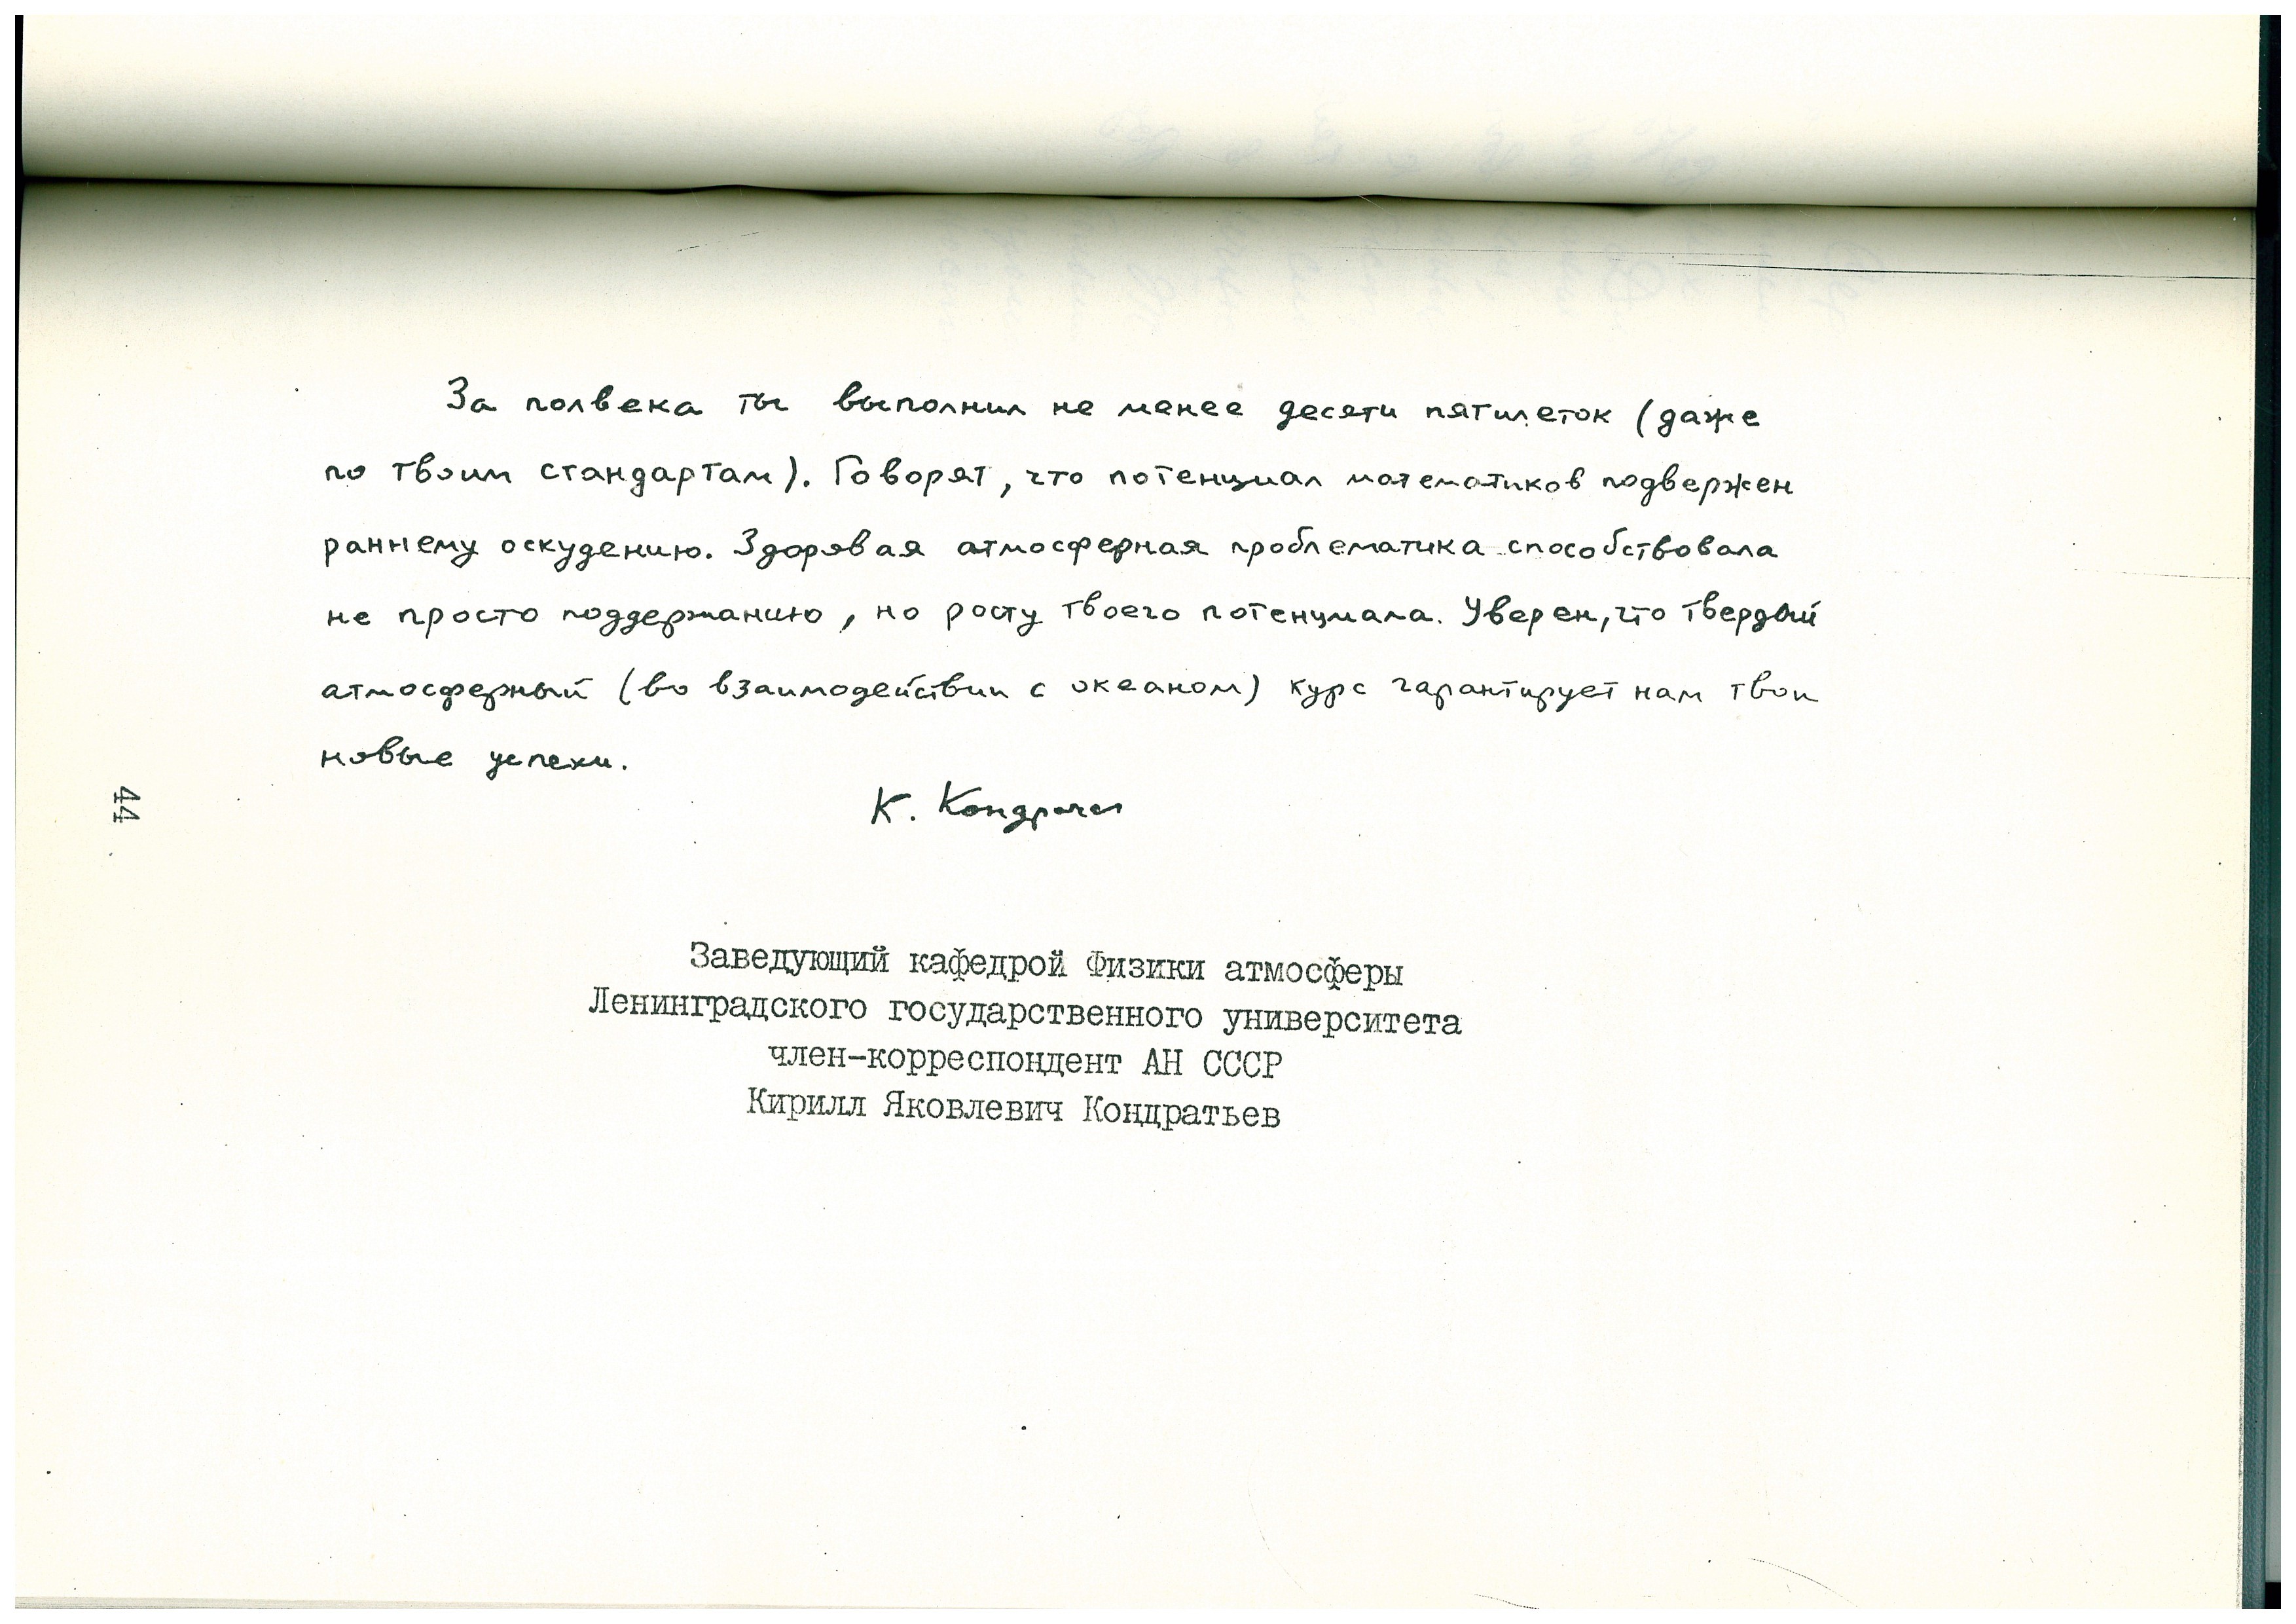 За полвека ты выполнил не менее десяти пятилеток (даже
по твоим стандартам). Говорят, что потенциал математиков подвержен
раннему оскудению. Здоровая атмосферная проблематика способствовала
не просто поддержанию, но росту твоего потенциала. Уверен, что твердый
атмосферный (во взаимодействии с океаном) курс гарантирует нам твои
новые успехи.
К. Кондратьев
44
Заведующий кафедрой Физики атмосферы
Ленинградского государственного университета
член-корреспондент АН СССР
Кирилл Яковлевич Кондратьев